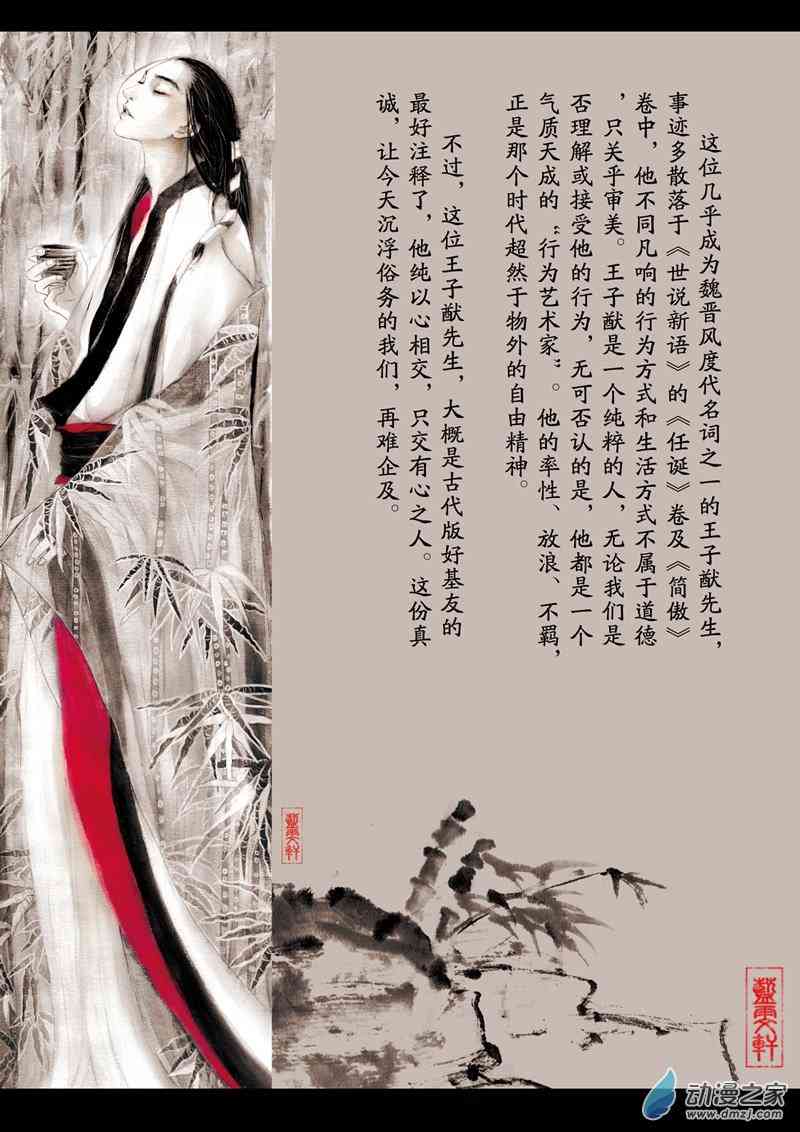 这位几乎成为魏晋风度代名词之一的王子猷先生，
事迹多散落于《世说新语》的《任诞》卷及《简傲》
卷中，他不同凡响的行为方式和生活方式不属于道德
，只关乎审美。王子猷是一个纯粹的人，无论我们是
否理解或接受他的行为，无可否认的是，他都是一个
气质天成的“行为艺术家”。他的率性、放浪、不羁，
正是那个时代超然于物外的自由精神。
不过，这位王子猷先生，大概是古代版好基友的
最好注释了，他纯以心相交，只交有心之人。这份真
诚，让今天沉浮俗务的我们，再难企及。
动漫之家
www.dmzj.com